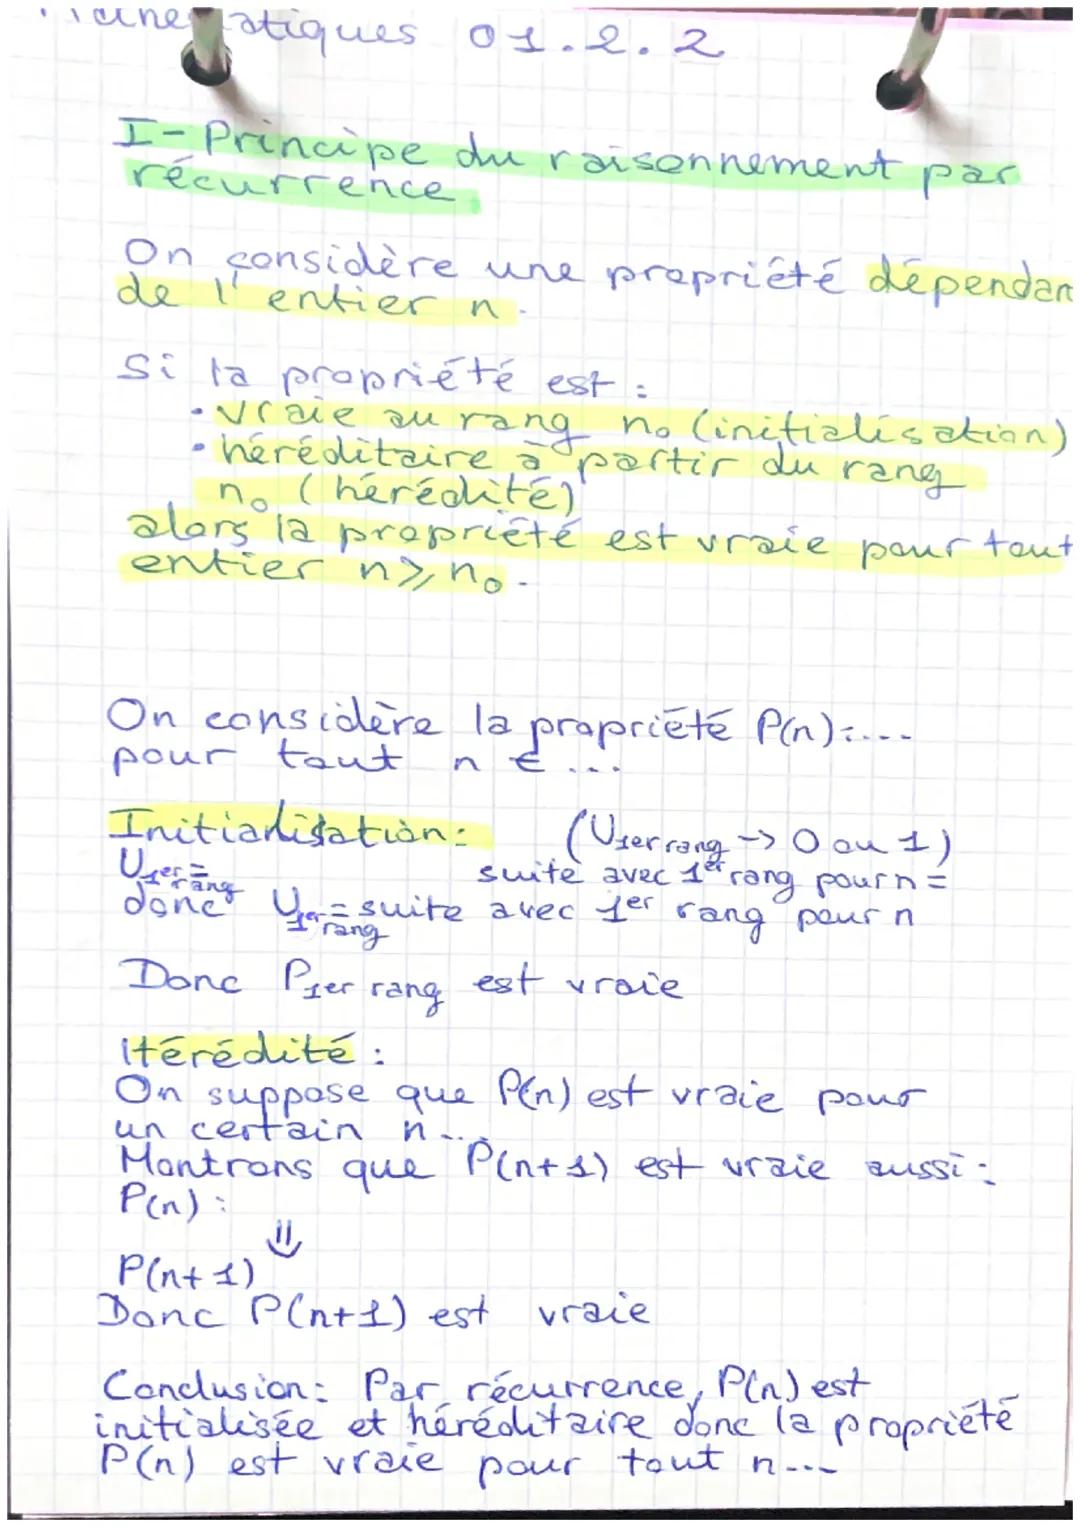 Mathématiques 01.2.2
I-Principe du raisonnement par
récurrence
On considère une propriété dépendan
de l'entier n.
Si la propriété est :
• vraie au rang n₀ (initialisation)
• héréditaire à partir du rang
n₀ (hérédité)
alors la propriété est vraie pour tout
entier n ⩾ n₀.
On considère la propriété P(n):...
pour tout n ∈ ...
Initialisation: (U1er rang -> 0 ou 1)
U1er rang = suite avec 1er rang pour n =
donc U1er rang = suite avec 1er rang pour n
Donc P1er rang est vraie
Hérédité :
On suppose que P(n) est vraie pour
un certain n...
Montrons que P(n+1) est vraie aussi :
P(n) :
⇓
P(n+1)
Donc P(n+1) est vraie
Conclusion: Par récurrence, P(n) est
initialisée et héréditaire donc la propriété
P(n) est vraie pour tout n...